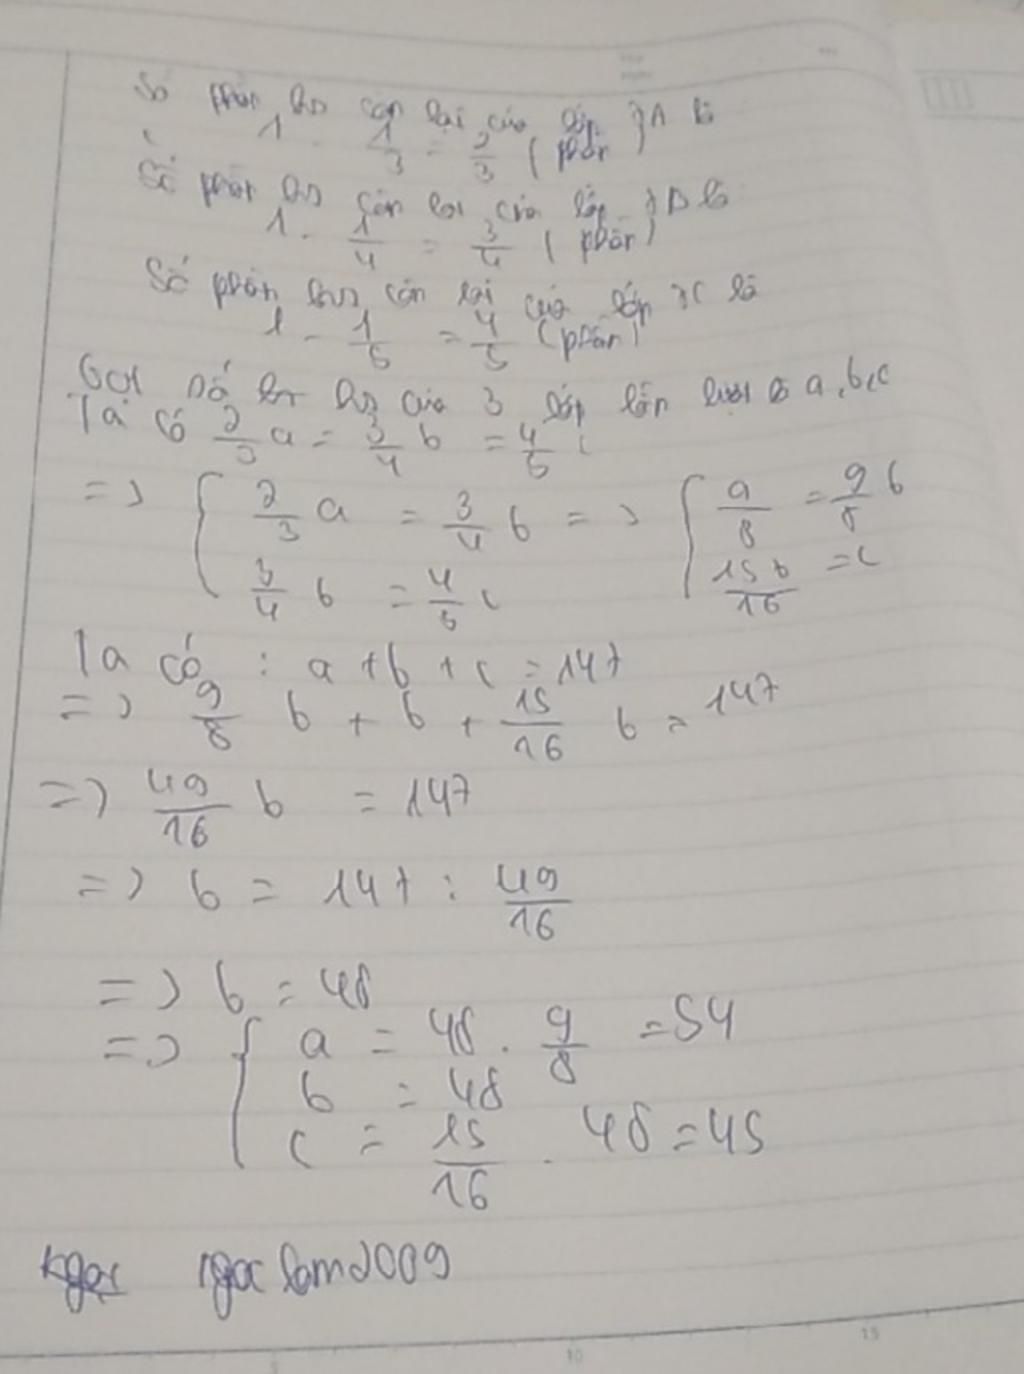 Số phần hs còn lại của lớp 7A là
1 - 1/3 = 2/3 ( phần )
Số phần hs còn lại của lớp 7B là
1 - 1/4 = 3/4 ( phần )
Số phần hs còn lại của lớp 7C là
1 - 1/5 = 4/5 ( phần )
Gọi số hs của 3 lớp lần lượt là a, b, c
Ta có 2/3 a = 3/4 b = 4/5 c
=> { 2/3 a = 3/4 b => { a/8 = 9/8 b
3/4 b = 4/5 c 15b/16 = c
Ta có : a + b + c = 147
=> 9/8 b + b + 15/16 b = 147
=> 49/16 b = 147
=> b = 147 : 49/16
=> b = 48
=> { a = 48 . 9/8 = 54
b = 48
c = 15/16 . 48 = 45
ngoclam2009